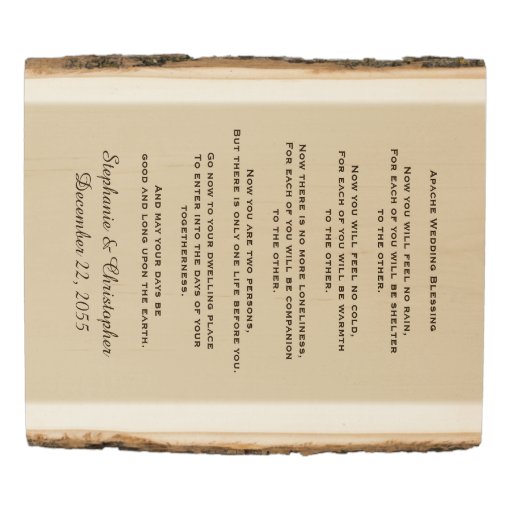 Apache Wedding Blessing
Now you will feel no rain,
For each of you will be shelter
to the other.
Now you will feel no cold,
For each of you will be warmth
to the other.
Now there is no more loneliness,
For each of you will be companion
to the other.
Now you are two persons,
But there is only one life before you.
Go now to your dwelling place
To enter into the days of your
togetherness.
And may your days be
good and long upon the earth.
Stephanie & Christopher
December 22, 2055